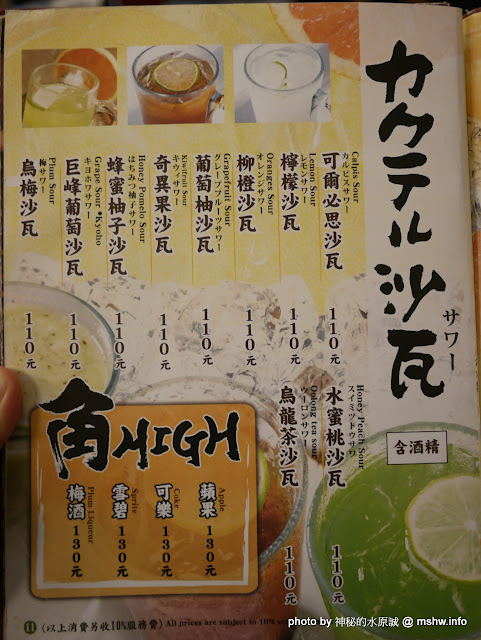 カクテル沙瓦
サワー
含酒精
Calpis Sour
カルピスサワー
可爾必思沙瓦 110元
Lemon Sour
レモンサワー
檸檬沙瓦 110元
Oranges Sour
オレンジサワー
柳橙沙瓦 110元
Grapefruit Sour
グレープフルーツサワー
葡萄柚沙瓦 110元
Kiwifruit Sour
キウィサワー
奇異果沙瓦 110元
Honey Pomelo Sour
はちみつ柚子サワー
蜂蜜柚子沙瓦 110元
Grape Sour *Kyoho
キヨホウサワー
巨峰葡萄沙瓦 110元
Plum Sour
梅サワー
烏梅沙瓦 110元
Honey Peach Sour
スイミツトウサワー
水蜜桃沙瓦 110元
Oolong tea sour
ウーロンサワー
烏龍茶沙瓦 110元
角HIGH
Apple
蘋果 130元
Coke
可樂 130元
Sprite
雪碧 130元
Plum Liqueur
梅酒 130元
11 (以上消費另收10%服務費) All prices are subject to 10%
photo by 神秘的水原誠 @ mshw.info